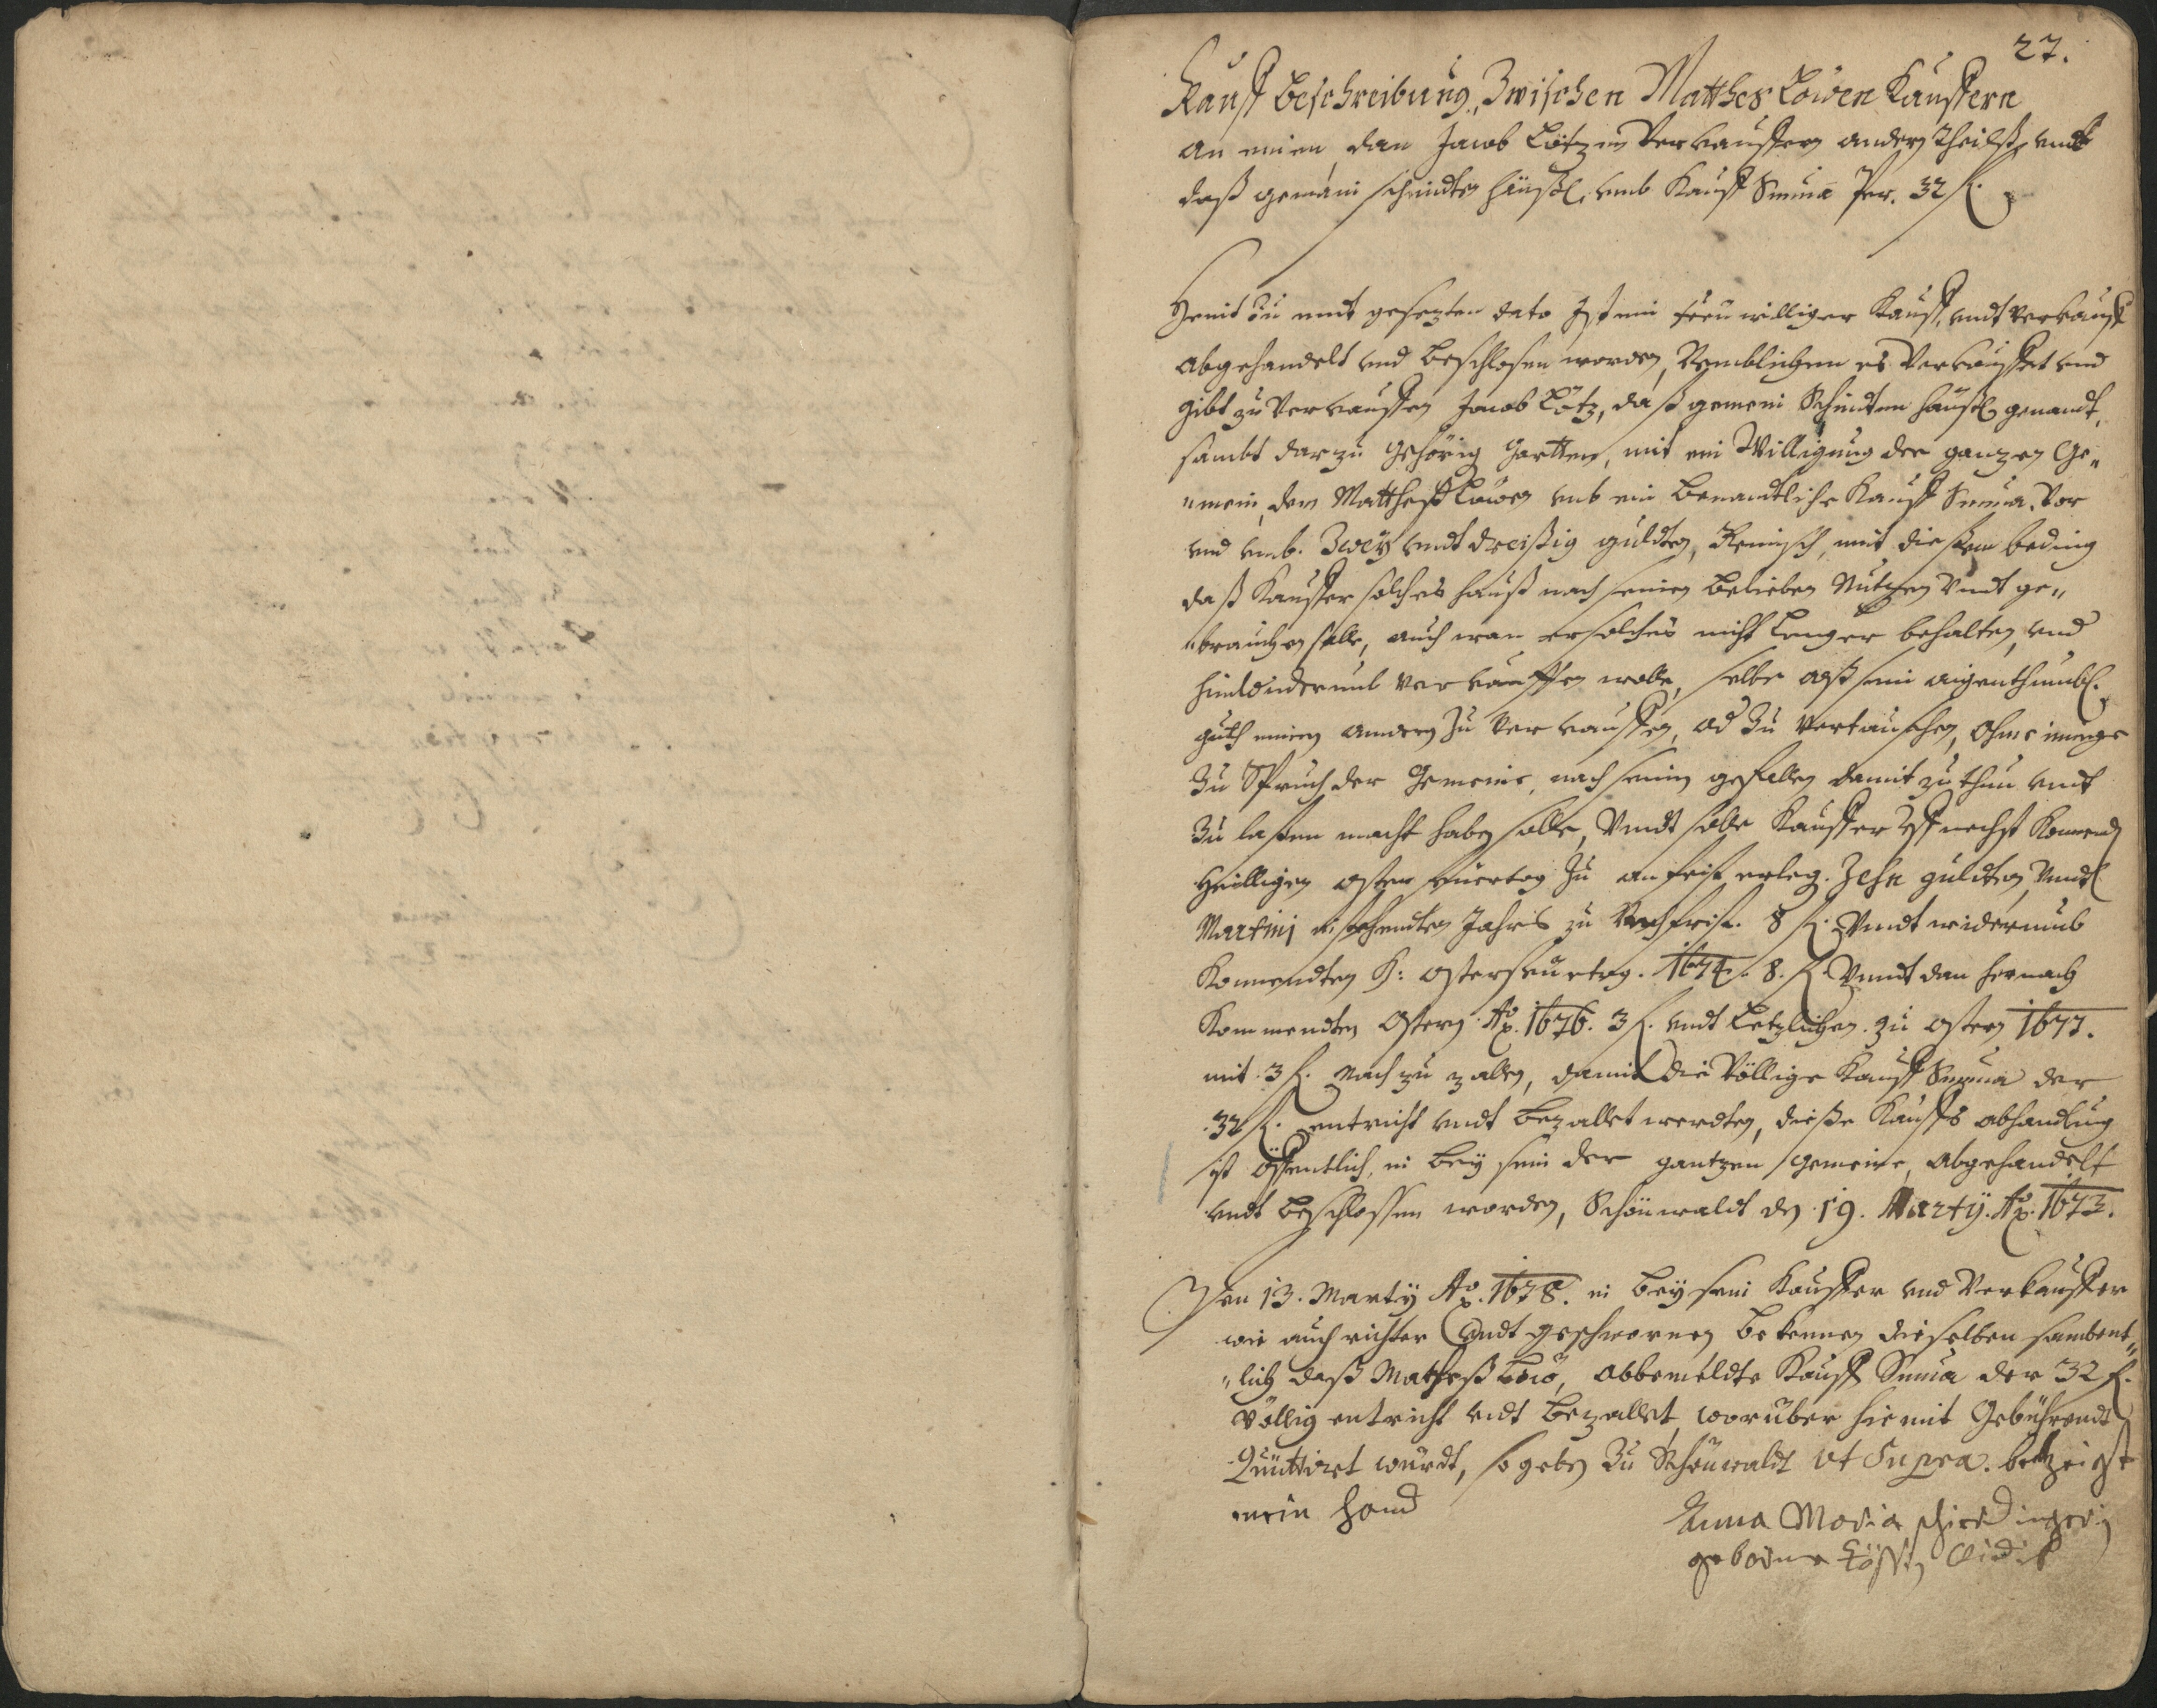 27.
Kauff beschreibung, Zwischen Matthes Löwen Kauffern
an einen, dan Jacob Lötz in Verkauffern andern Theilß, umb
daß gemain schindten Häußl, umb Kauff Suma Per. 32 fl.
Heunt zu endt gesezten dato Ist ein freu williger Kauff, undt verkauff
abgehandelt und beschlosen worden, Nemblichen es verkauffet und
gibt zu verkauffen Jacob Lötz, daß gemein Schindten häußl genandt,
sambt darzu gehörig gartten, mit ein Willigung der ganzen Ge„
„mein, dem Matheß Löwen umb ein benandtliche Kauff Suma. Vor
und umb. Zwey undt dreißig gulden, Reinisch, mit diesem beding
daß Kauffer solches hauß nach seinen belieben Nutzen Undt ge„
„brauchen solle, auch wan er solches nicht lenger behalten, und
verkauffen wolle, selbe alß sein aigenthumbl.
guth einen andern zu verkauffen, od Zu vertauschen, ohne einige
Zu Spruch der Gemeine, nach seinen gefallen damit zu thun undt
Zu laßen macht haben solle, Undt solle Kauffer Jzt nechst Komend
Heilligen oster feuertag Zu anfrist erleg. Zehn gulden, Undt
Martinj Jahrs zu Nachfrist. 8 fl. Undt widerumb
Komendten H: osterfeuertag. 1674. 8. fl. Unndt dan hernach
Kommendten Ostern Ao. 1676. 3 fl. undt Letzlichen zu ostern 1677.
mit 3 fl. Nach zu zallen, damit die Völlige Kauff Suma der
32 fl. entricht undt bezallet werdten, diese Kauffs abhandlung
ist öffentlich in bey sein der gantzen gemeine, abgehandelt
undt beschlossen worden, Schönwaldt den 19. Marty. Ao. 1673.
Den 13. Marty Ao. 1678. in bey sein Kauffer und Verkauffer
wie auch richter undt geschwornen bekennen dieselben sambent„
„lich daß Matheß Löw, obbemeldte Kauff Suma der 32 fl.
völlig entricht undt bezallet, worüber hiemit Gebührendt
Quittiret würdt, so geben Zu Schönwaldt ut Supra. bezeigt
mein hand
Anna Maria
geborne